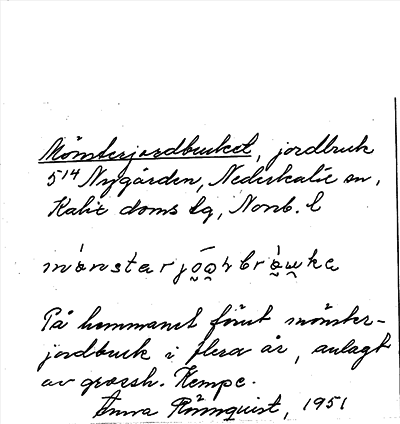 Mönsterjordbruket, jordbruk
5¹⁴ Nygården, Nederkalix sn,
Kalix doms lg, Norrb. l
På hemmanet förut mönster-
jordbruk i flera år, anlagt
av grossh. Kempe.
Anna Rönnquist, 1951